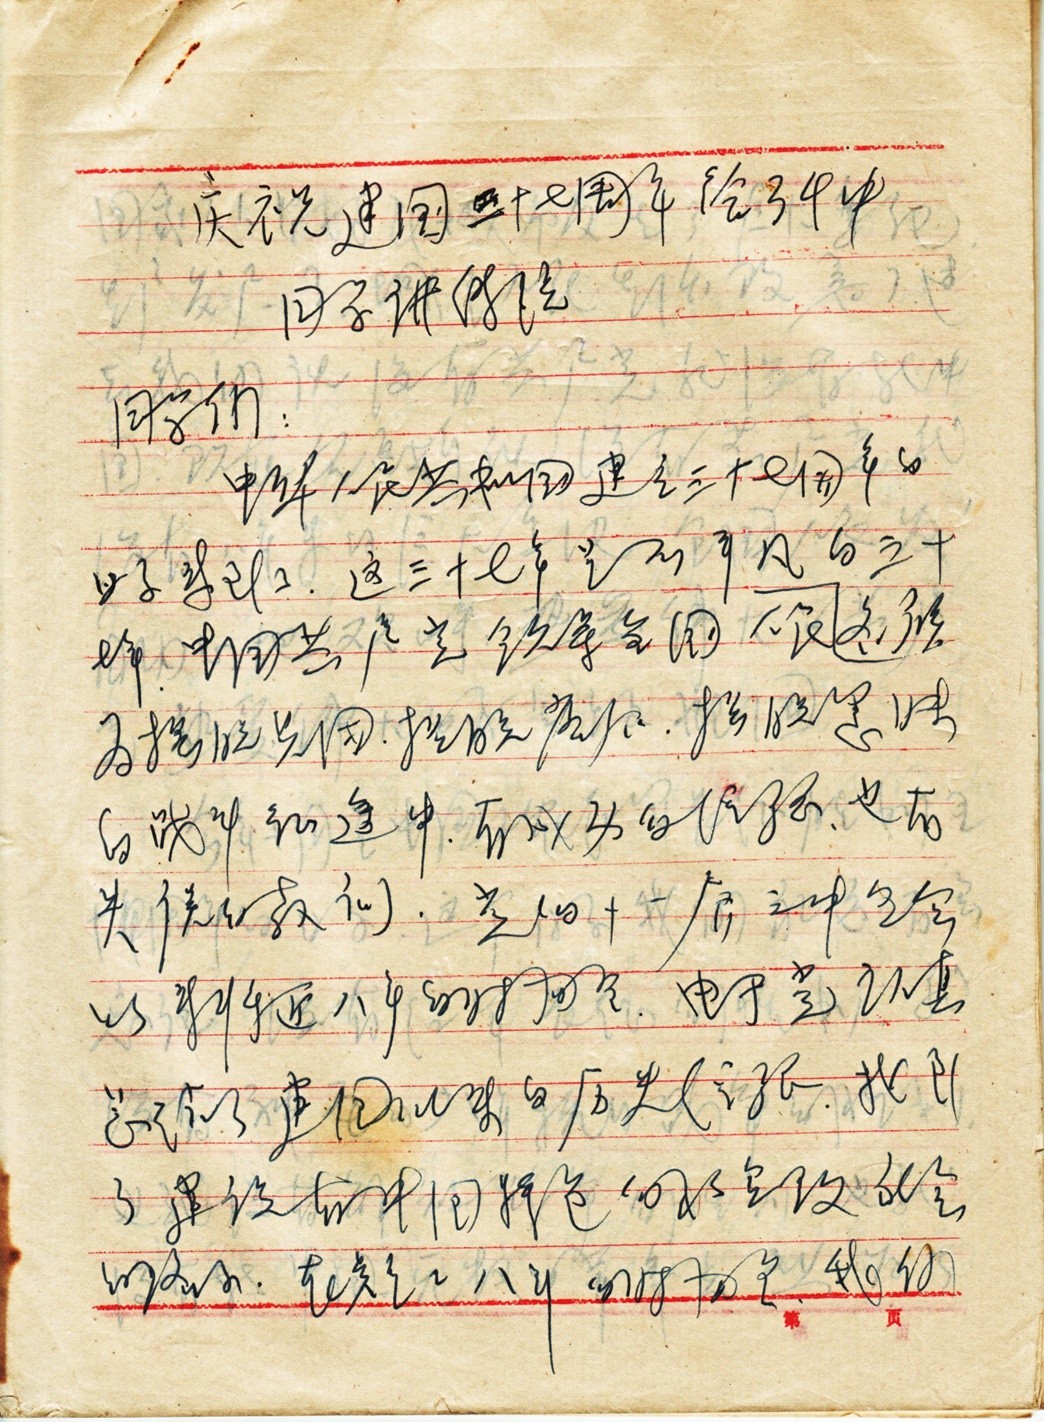 庆祝建国三十七周年给
同学讲传统
同学们：
中华人民共和国建立三十七周年的
日子来到了．这三十七年是不平凡的三十
七年．中国共产党领导全国人民这段
为摆脱 国．摆脱落后．摆脱愚昧
的战斗征途中．有成功的经验、也有
失误的教训．党的十一届三中全会
以来将近八年的时间里．由于党认真
总结了建国以来的历史经验．找到
了建设有中国特色的社会主义社会
的路子．在这八年的时间里，我们
第 页